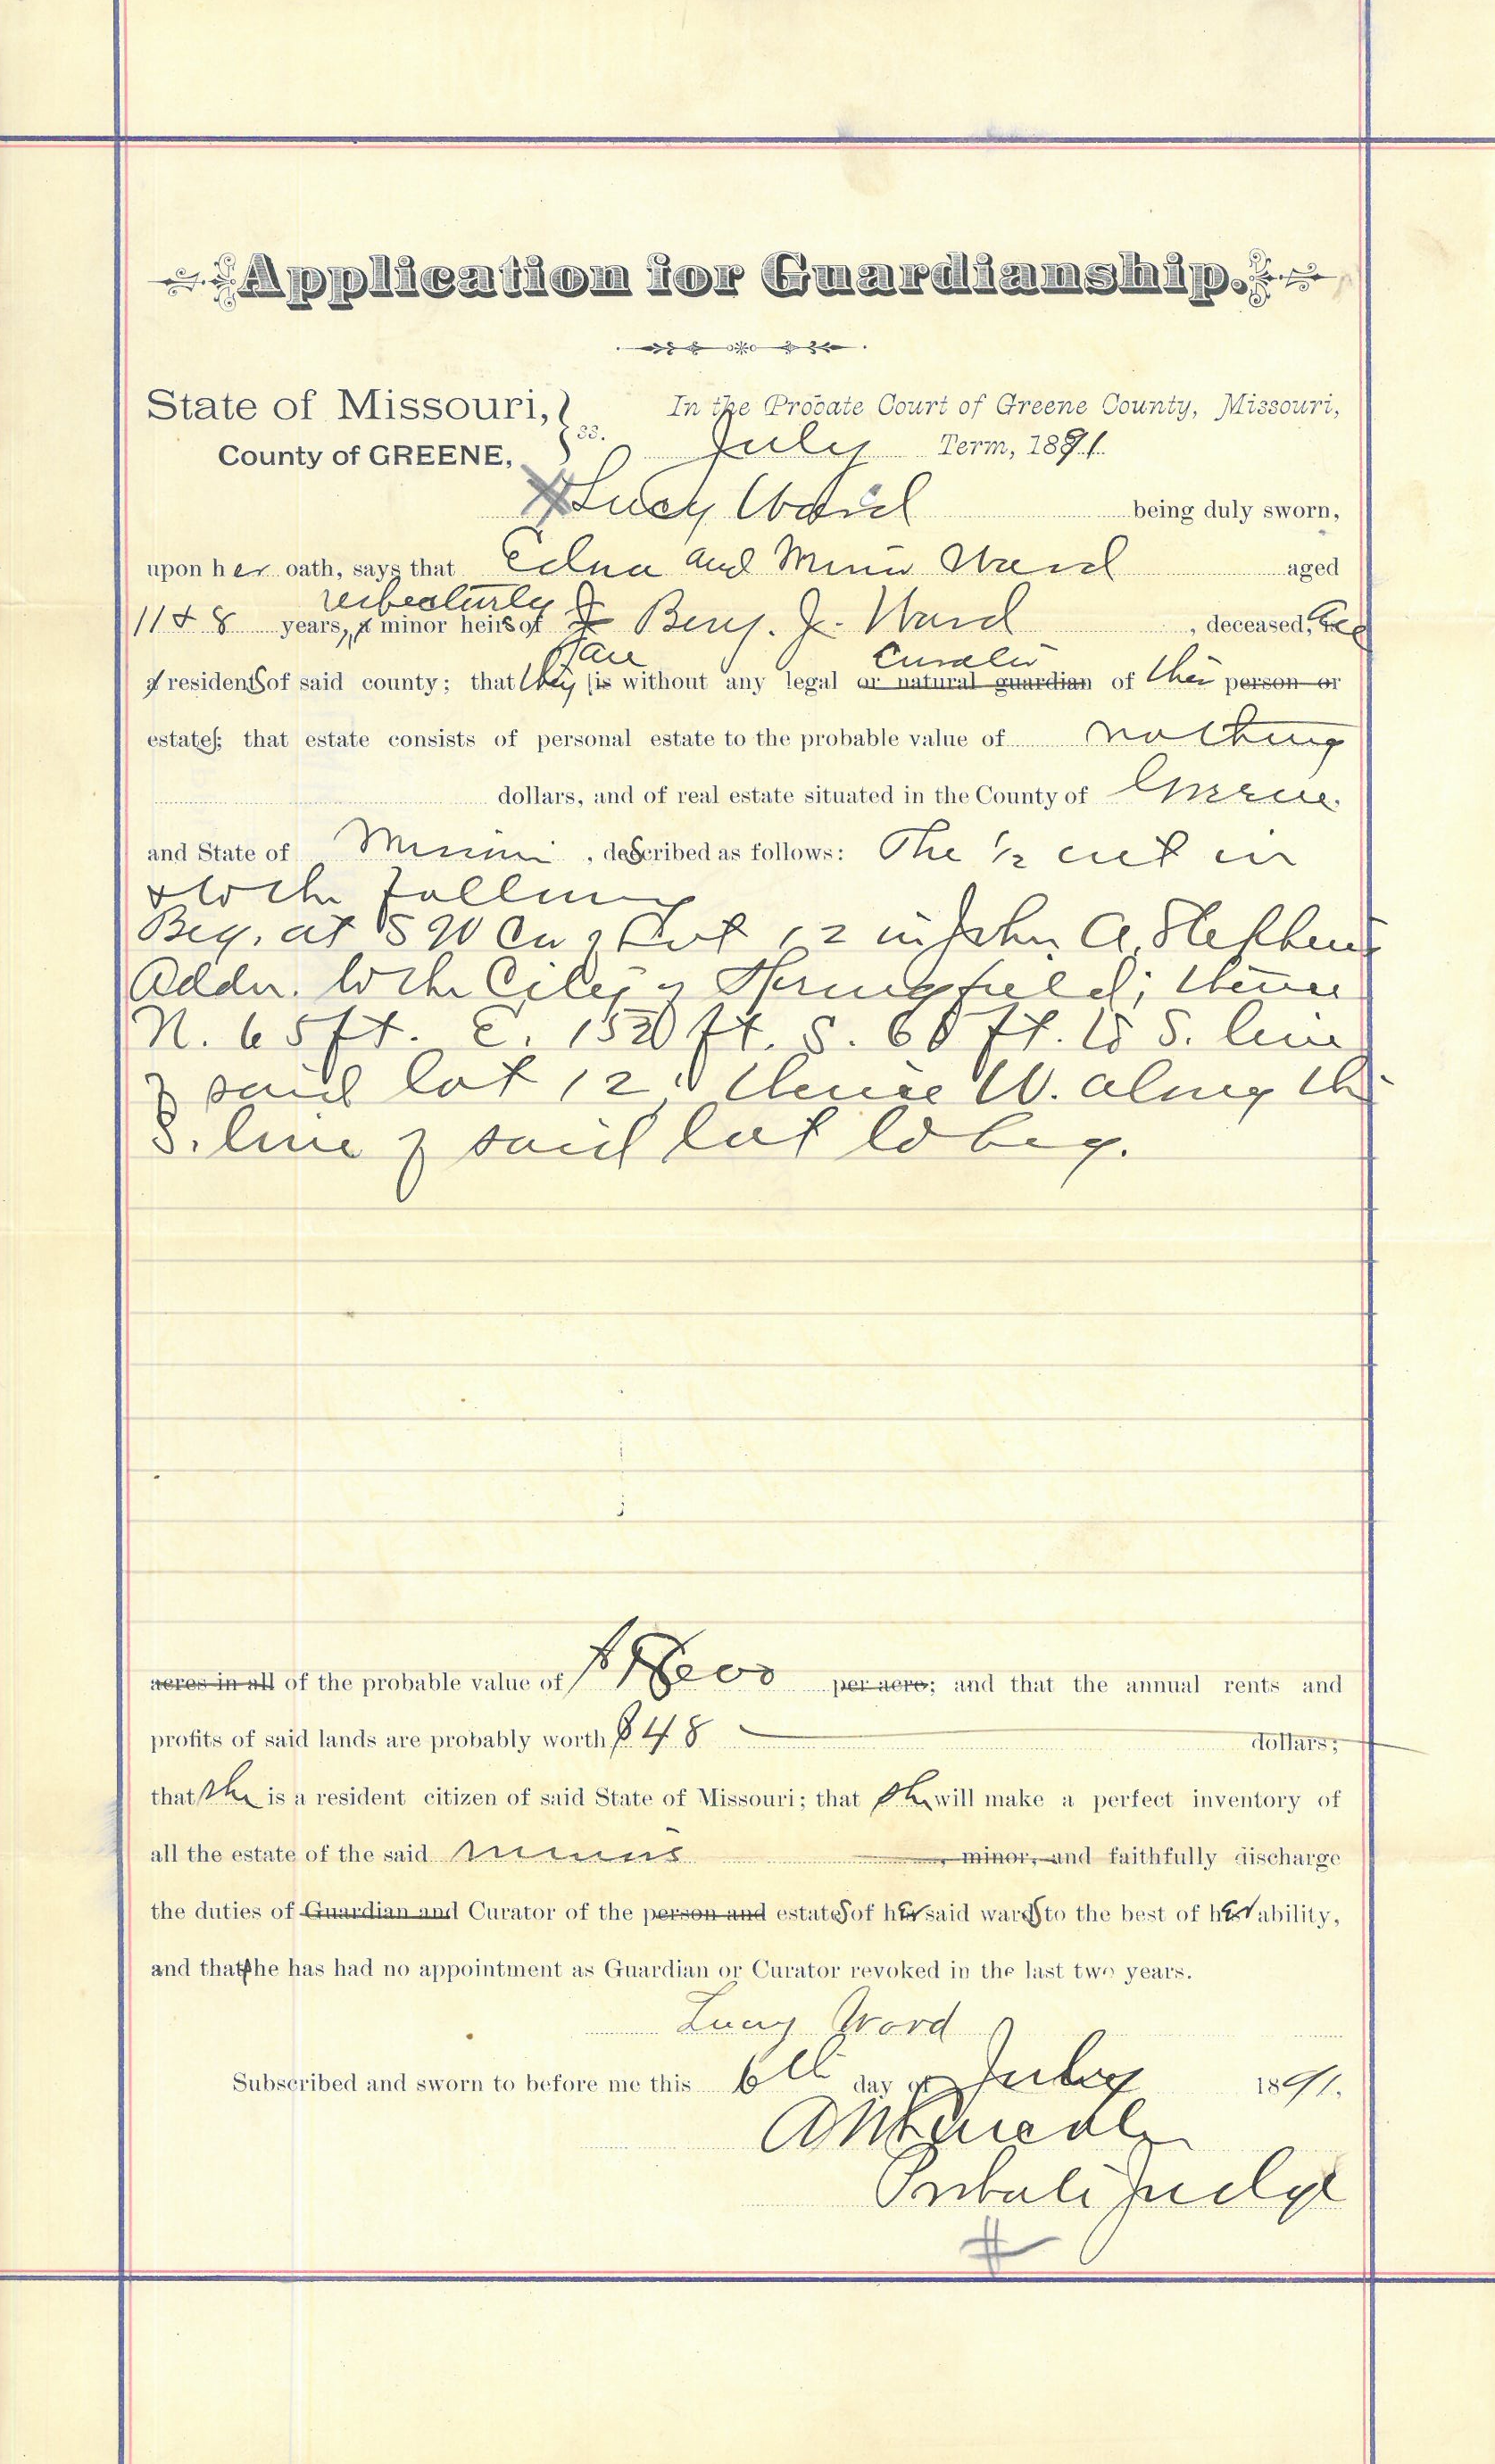 Application for Guardianship.
State of Missouri, ss. In the Probate Court of Greene County, Missouri,
County of GREENE, July Term, 1891.
Lucy Ward being duly sworn,
upon her oath, says that Edna and Ward aged
respectively
11 & 8 years, minor heirs of Benj. J. Ward, deceased, are
are Curator
residents of said county; that they is without any legal or natural guardian of their person or
estates; that estate consists of personal estate to the probable value of nothing
dollars, and of real estate situated in the County of Greene
and State of Missouri, described as follows: The ½ int in
& to the following
Beg. at SW Cor of Lot 12 in John A. Stephens
Addn. to the City of Springfield; thence
N. 65 ft. E. ft. S. ft. to S. line
of said lot 12; thence W. along the
S. line of said lot to beg.
acres in all of the probable value of per acre; and that the annual rents and
profits of said lands are probably worth $48 dollars;
that she is a resident citizen of said State of Missouri; that she will make a perfect inventory of
all the estate of the said minors, minor, and faithfully discharge
the duties of Guardian and Curator of the person and estates of her said wards to the best of her ability,
and that she has had no appointment as Guardian or Curator revoked in the last two years.
Lucy Ward
Subscribed and sworn to before me this 6th day of July 1891.
Probate Judge